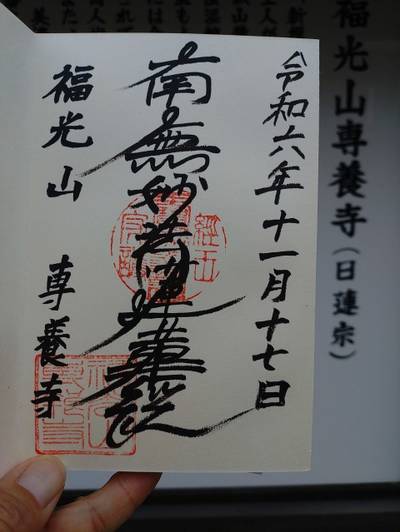 令和六年十一月十七日
南無妙法蓮華経
福光山 専養寺
福光山専養寺(日蓮宗)